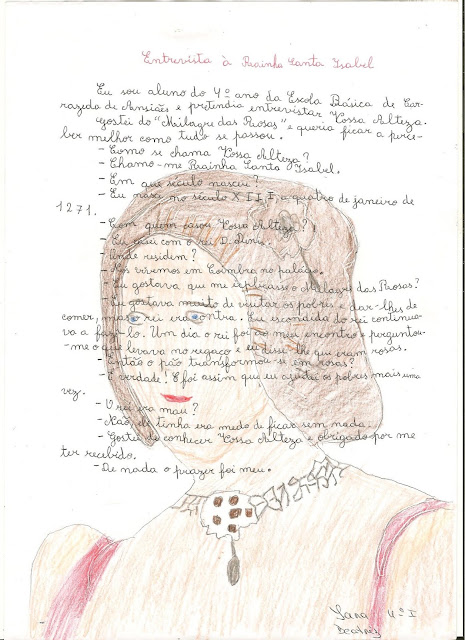 Entrevista à Rainha Santa Isabel
Eu sou aluno do 4º ano da Escola Básica de Car-
razeda de Ansiães e pretendia entrevistar Vossa Alteza.
Gostei do "Milagre das Rosas" e queria ficar a perce-
ber melhor como tudo se passou.
- Como se chama Vossa Alteza?
- Chamo-me Rainha Santa Isabel.
- Em que século nasceu?
- Eu nasci no século XIII, a quatro de janeiro de
1271.
- Com quem casou Vossa Alteza?
- Eu casei com o rei D. Dinis.
- Onde residem?
- Nós vivemos em Coimbra no palácio.
- Eu gostava que me explicasse o Milagre das Rosas?
- Eu gostava muito de visitar os pobres e dar-lhes de
comer, mas o rei era contra. Eu escondida do rei continua-
va a fazê-lo. Um dia o rei foi ao meu encontro e perguntou-
-me o que levava no regaço e eu disse-lhe que eram rosas.
- Então o pão transformou-se em rosas?
- É verdade. E foi assim que eu ajudei os pobres mais uma
vez.
- O rei era mau?
- Não, ele tinha era medo de ficar sem nada.
- Gostei de conhecer Vossa Alteza e obrigado por me
ter recebido.
- De nada o prazer foi meu.
4º I
Beatriz